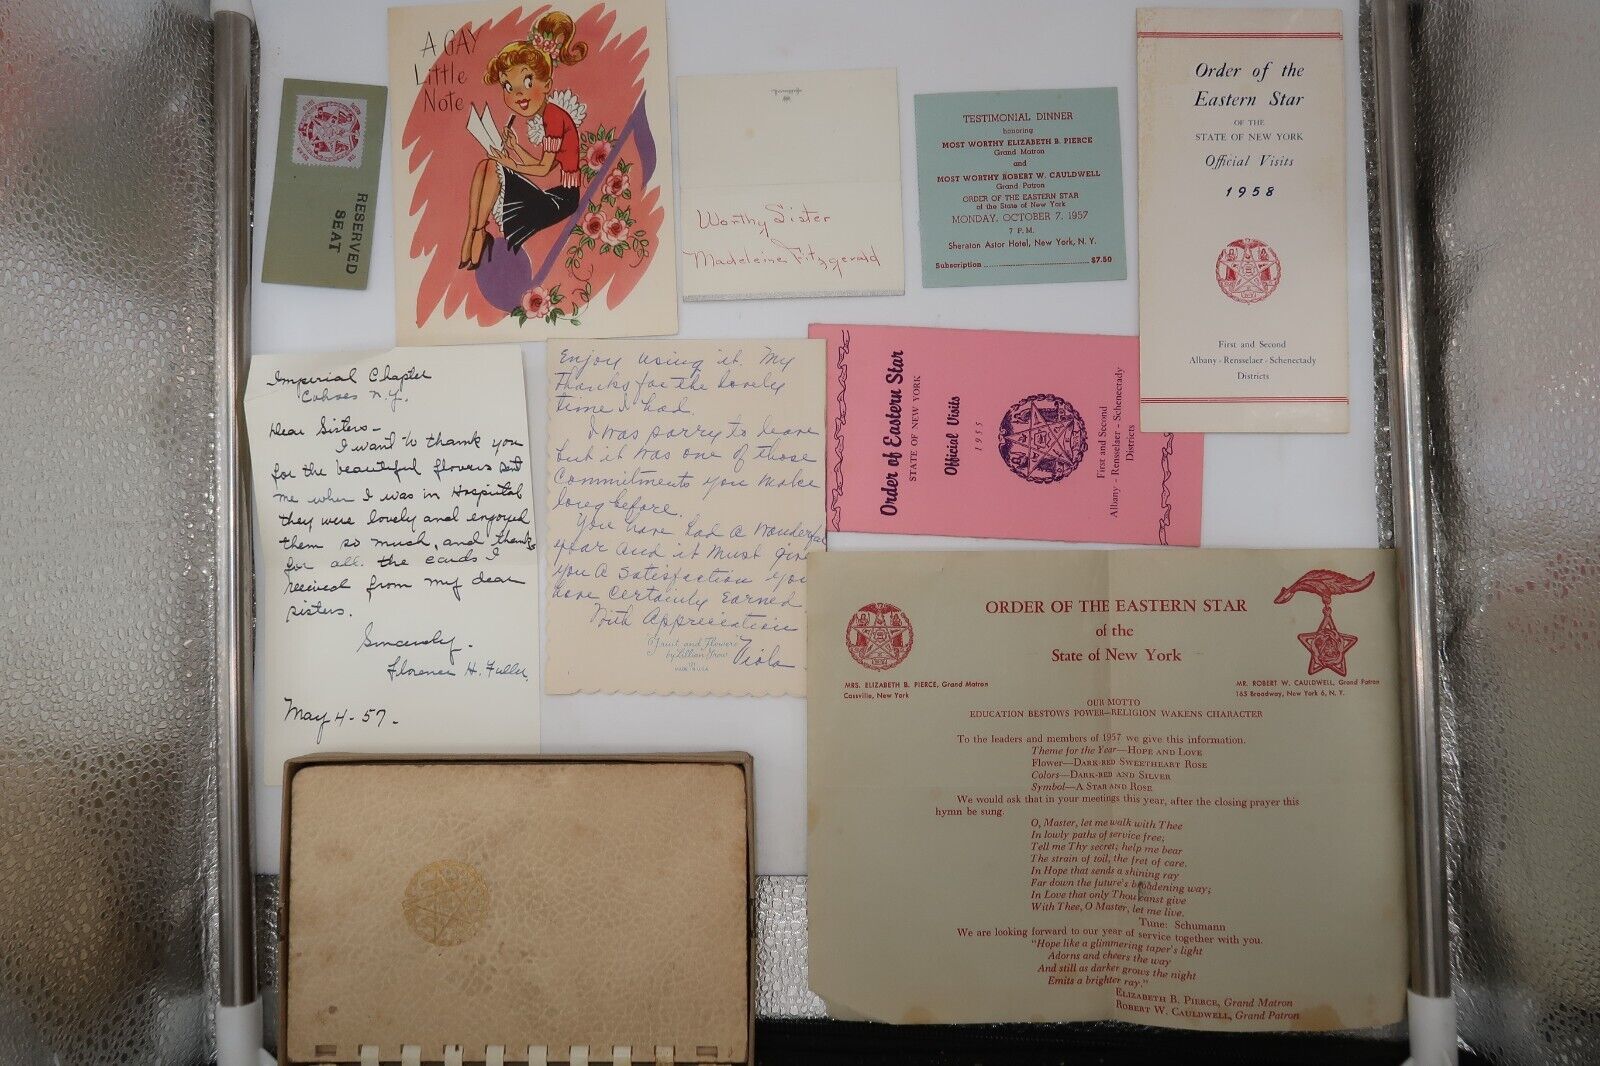 RESERVED
SEAT
A GAY
Little
Note
Hallmark
Worthy Sister
Madeleine Fitzgerald
TESTIMONIAL DINNER
honoring
MOST WORTHY ELIZABETH B. PIERCE
Grand Matron
and
MOST WORTHY ROBERT W. CAULDWELL
Grand Patron
ORDER OF THE EASTERN STAR
of the State of New York
MONDAY, OCTOBER 7, 1957
7 P.M.
Sheraton Astor Hotel, New York, N. Y.
Subscription ........................ $7.50
Order of the
Eastern Star
OF THE
STATE OF NEW YORK
Official Visits
1958
First and Second
Albany - Rensselaer - Schenectady
Districts
Imperial Chapter
Cohoes N.Y.
Dear Sisters -
I want to thank you
for the beautiful flowers sent
me when I was in Hospital
they were lovely and enjoyed
them so much, and thanks
for all the cards I
received from my dear
sisters.
Sincerely -
Florence H. Fuller
May 4 - 57 -
Enjoy using it. My
thanks for the lovely
time I had.
I was sorry to leave
but it was one of those
commitments you make
long before.
You have had a wonderful
year and it must give
you a satisfaction you
have certainly earned
With Appreciation
Viola
"Fruit and Flowers"
by Lillian Grow
MADE IN U.S.A.
Order of Eastern Star
STATE OF NEW YORK
Official Visits
1955
First and Second
Albany - Rensselaer - Schenectady
Districts
ORDER OF THE EASTERN STAR
of the
State of New York
MRS. ELIZABETH B. PIERCE, Grand Matron
Cassville, New York
MR. ROBERT W. CAULDWELL, Grand Patron
165 Broadway, New York 6, N. Y.
OUR MOTTO
EDUCATION BESTOWS POWER—RELIGION WAKENS CHARACTER
To the leaders and members of 1957 we give this information.
Theme for the Year—HOPE AND LOVE
Flower—DARK-RED SWEETHEART ROSE
Colors—DARK-RED AND SILVER
Symbol—A STAR AND ROSE
We would ask that in your meetings this year, after the closing prayer this
hymn be sung.
O, Master, let me walk with Thee
In lowly paths of service free;
Tell me Thy secret; help me bear
The strain of toil, the fret of care.
In Hope that sends a shining ray
Far down the future's broadening way;
In Love that only Thou canst give
With Thee, O Master, let me live.
Tune: Schumann
We are looking forward to our year of service together with you.
"Hope like a glimmering taper's light
Adorns and cheers the way
And still as darker grows the night
Emits a brighter ray."
ELIZABETH B. PIERCE, Grand Matron
ROBERT W. CAULDWELL, Grand Patron